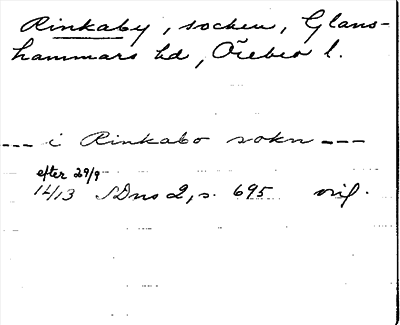 Rinkaby, socken, Glans-
hammars hd, Örebro l.
--- i Rinkabo sokn ---
efter 29/9
1413 SDns 2, s. 695 orig.